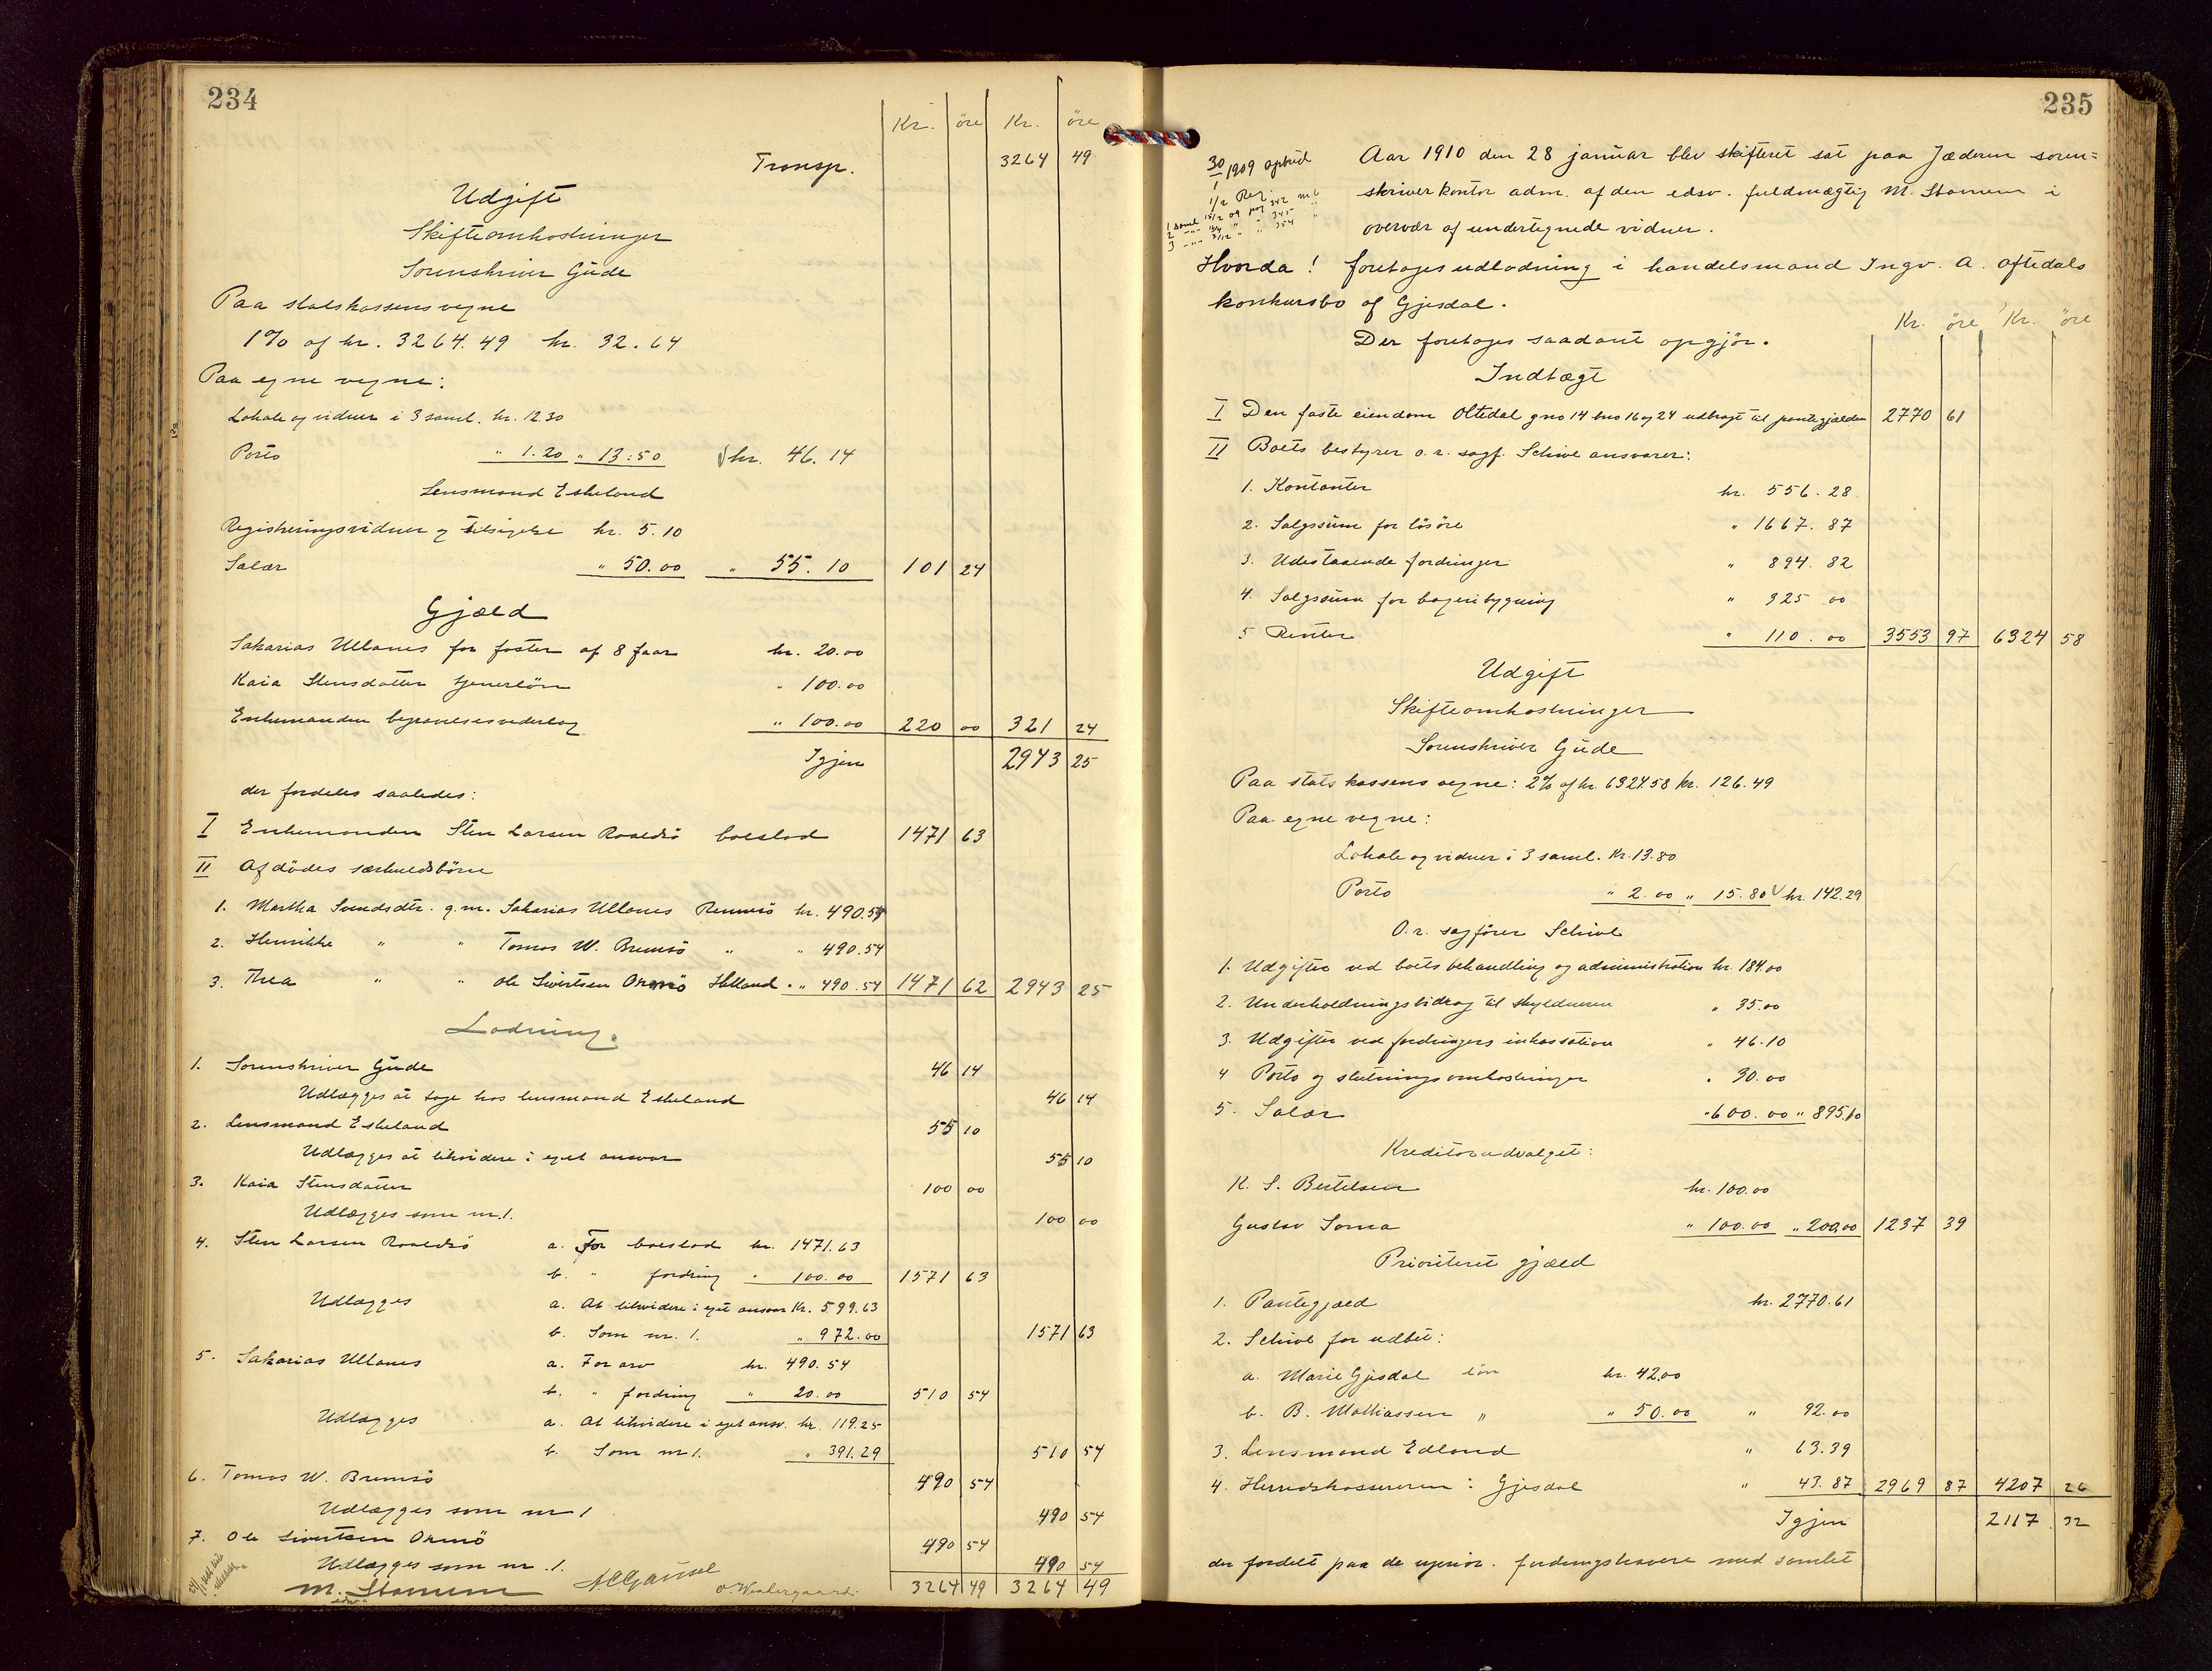 234
Kr. öre Kr. öre
Transp. 3264 49
Udgift
Skifteomkostninger
Sorenskriver Güde
Paa statskassens vegne
1% af kr. 3264.49 kr. 32.64
Paa egne vegne:
Lokale og vidner i 3 saml. kr. 12.30
Porto " 1.20 " 13:50 kr. 46.14
Lensmand Eskeland
Registreringsvidner og tilsigelse kr. 5.10
Salær " 50.00 " 55.10 101 24
Gjæld
Sakarias Ullanes for foster af 8 faar kr. 20.00
Kaia Stensdatter tjenerlön " 100.00
Enkemanden begravelsesvederlag " 100.00 220 00 321 24
Igjen 2943 25
der fordeles saaledes:
I Enkemanden Sten Larsen Roaldsö boeslod 1471 63
II Afdödes særkuldsbörn
1. Martha Svendsdtr. g.m. Sakarias Ullanes Rennesö kr. 490.54
2. Henrikke " " Tomas W. Bremsö " " 490.54
3. Thea " " Ole Sivertsen Ormö Helland " 490.54 1471 62 2943 25
Lodning.
1. Sorenskriver Güde 46 14
Udlægges at tage hos lensmand Eskeland 46 14
2. Lensmand Eskeland 55 10
Udlægges at likvidere i eget ansvar 55 10
3. Kaia Stensdatter 100 00
Udlægges som nr. 1. 100 00
4. Sten Larsen Roaldsö a. For boeslod kr. 1471.63
b. " fordring " 100.00 1571 63
Udlægges a. At likvidere i eget ansvar Kr. 599.63
b. Som nr. 1. " 972.00 1571 63
5. Sakarias Ullanes a. For arv kr. 490.54
b. " fordring " 20.00 510 54
Udlægges a. At likvidere i eget ansv. kr. 119.25
b. Som nr 1. " 391.29 510 54
6. Tomas W. Bremsö 490 54
Udlægges som nr 1 490 54
7. Ole Sivertsen Ormö 490 54
Udlægges som nr. 1. 490 54
M. Stamnem
3264 49 3264 49
235
30/1 1909 opbud
1/2 Reg. 342 nr. 6
1 saml 15/2 09 prot 345 "
2 " 354 "
3
Aar 1910 den 28 januar blev skifteret sat paa Jæderen soren=
skriverkontor adm. af den edsv. fuldmægtig M. Stamnem i
overvær af undertegnede vidner.
Hvorda! foretoges udlodning i handelsmand Ingv. A. Oftedals
konkursbo af Gjesdal.
Der foretoges saadant opgjör.
Kr. öre Kr. öre
Indtægt
I Den faste eiendom Oltedal gno 14 bno 16 og 24 udbragt til pantegjælden 2770 61
II Boets bestyrer o.r. sagf. Schive ansvarer:
1. Kontanter kr. 556.28
2. Salgssum for lösöre " 1667.87
3. Udestaaende fordringer " 894.82
4. Salgssum for bageribygning " 325 00
5 Renter " 110.00 3553 97 6324 58
Udgift
Skifteomkostninger
Sorenskriver Güde
Paa statskassens vegne: 2% af kr. 6324.58 kr. 126.49
Paa egne vegne:
Lokale og vidner i 3 saml. Kr. 13.80
Porto " 2.00 " 15.80 kr. 142.29
O.r. sagförer Schive
1. Udgifter ved boets behandling og administration kr. 184.00
2. Underholdningsbidrag til skyldneren " 35.00
3. Udgifter ved fordringers inkassation " 46.10
4 Porto og slutningsomkostninger " 30.00
5. Salær " 600.00 " 895.10
Kreditorudvalget:
K. S. Bertelsen kr. 100.00
Gustav Soma " 100.00 " 200.00 1237 39
Prioriteret gjæld
1. Pantegjæld kr. 2770.61
2. Schive for udbet:
a. Marie Gjesdal lön kr. 42.00
b. B. Mathiassen " " 50.00 " 92.00
3. Lensmand Edland " 63.39
4. Herredskassereren i Gjesdal " 43.87 2969 87 4207 26
Igjen 2117 32
der fordelt paa de uprior. fordringshavere med samlet